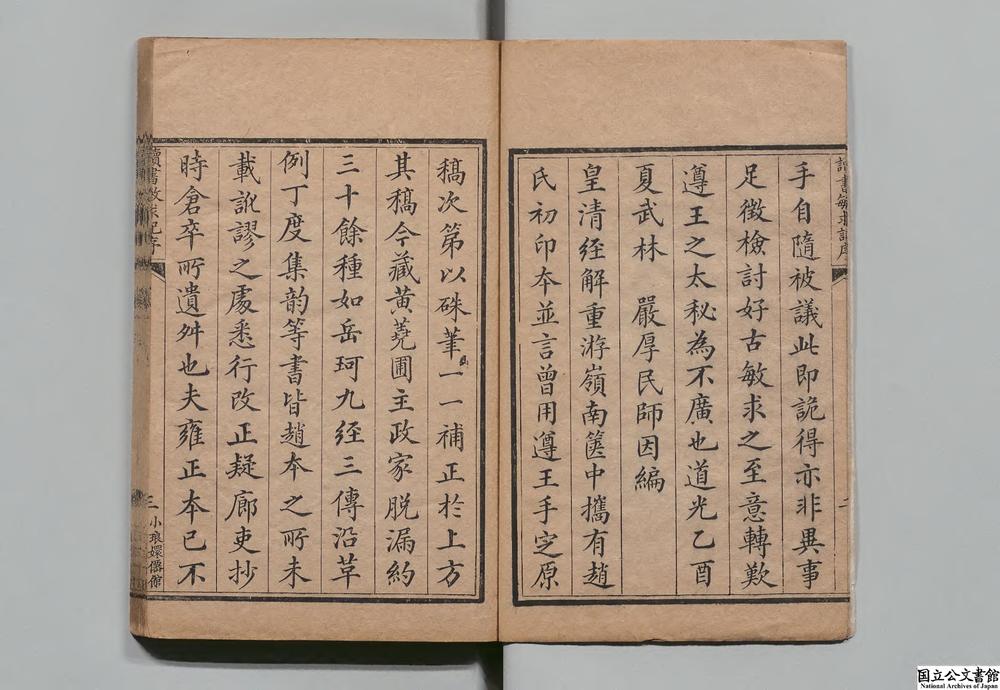 讀書敏求記序
二
手自隨被議此即詭得亦非異事
足徵檢討好古敏求之至意轉歎
遵王之太秘為不廣也道光乙酉
夏武林　嚴厚民師因編
皇清经解重游嶺南篋中攜有趙
氏初印本並言曾用遵王手定原
稿次第以硃筆一一補正於上方
其稿今藏黄蕘圃主政家脱漏約
三十餘種如岳珂九经三傳沿革
例丁度集韵等書皆趙本之所未
載訛謬之處悉行改正疑廊吏抄
時倉卒所遺舛也夫雍正本已不
讀書敏求記序
三
小琅嬛僊館
国立公文書館
National Archives of Japan